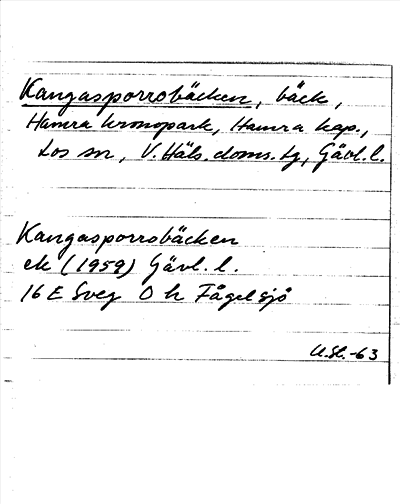 Kangasporrobäcken, bäck,
Hamra kronopark, Hamra kap.,
Los sn, V. Häls. doms. tg, Gävl. l.
Kangasporrobäcken
ek (1959) Gävl. l.
16 E Sveg 0 h Fågelsjö
-63